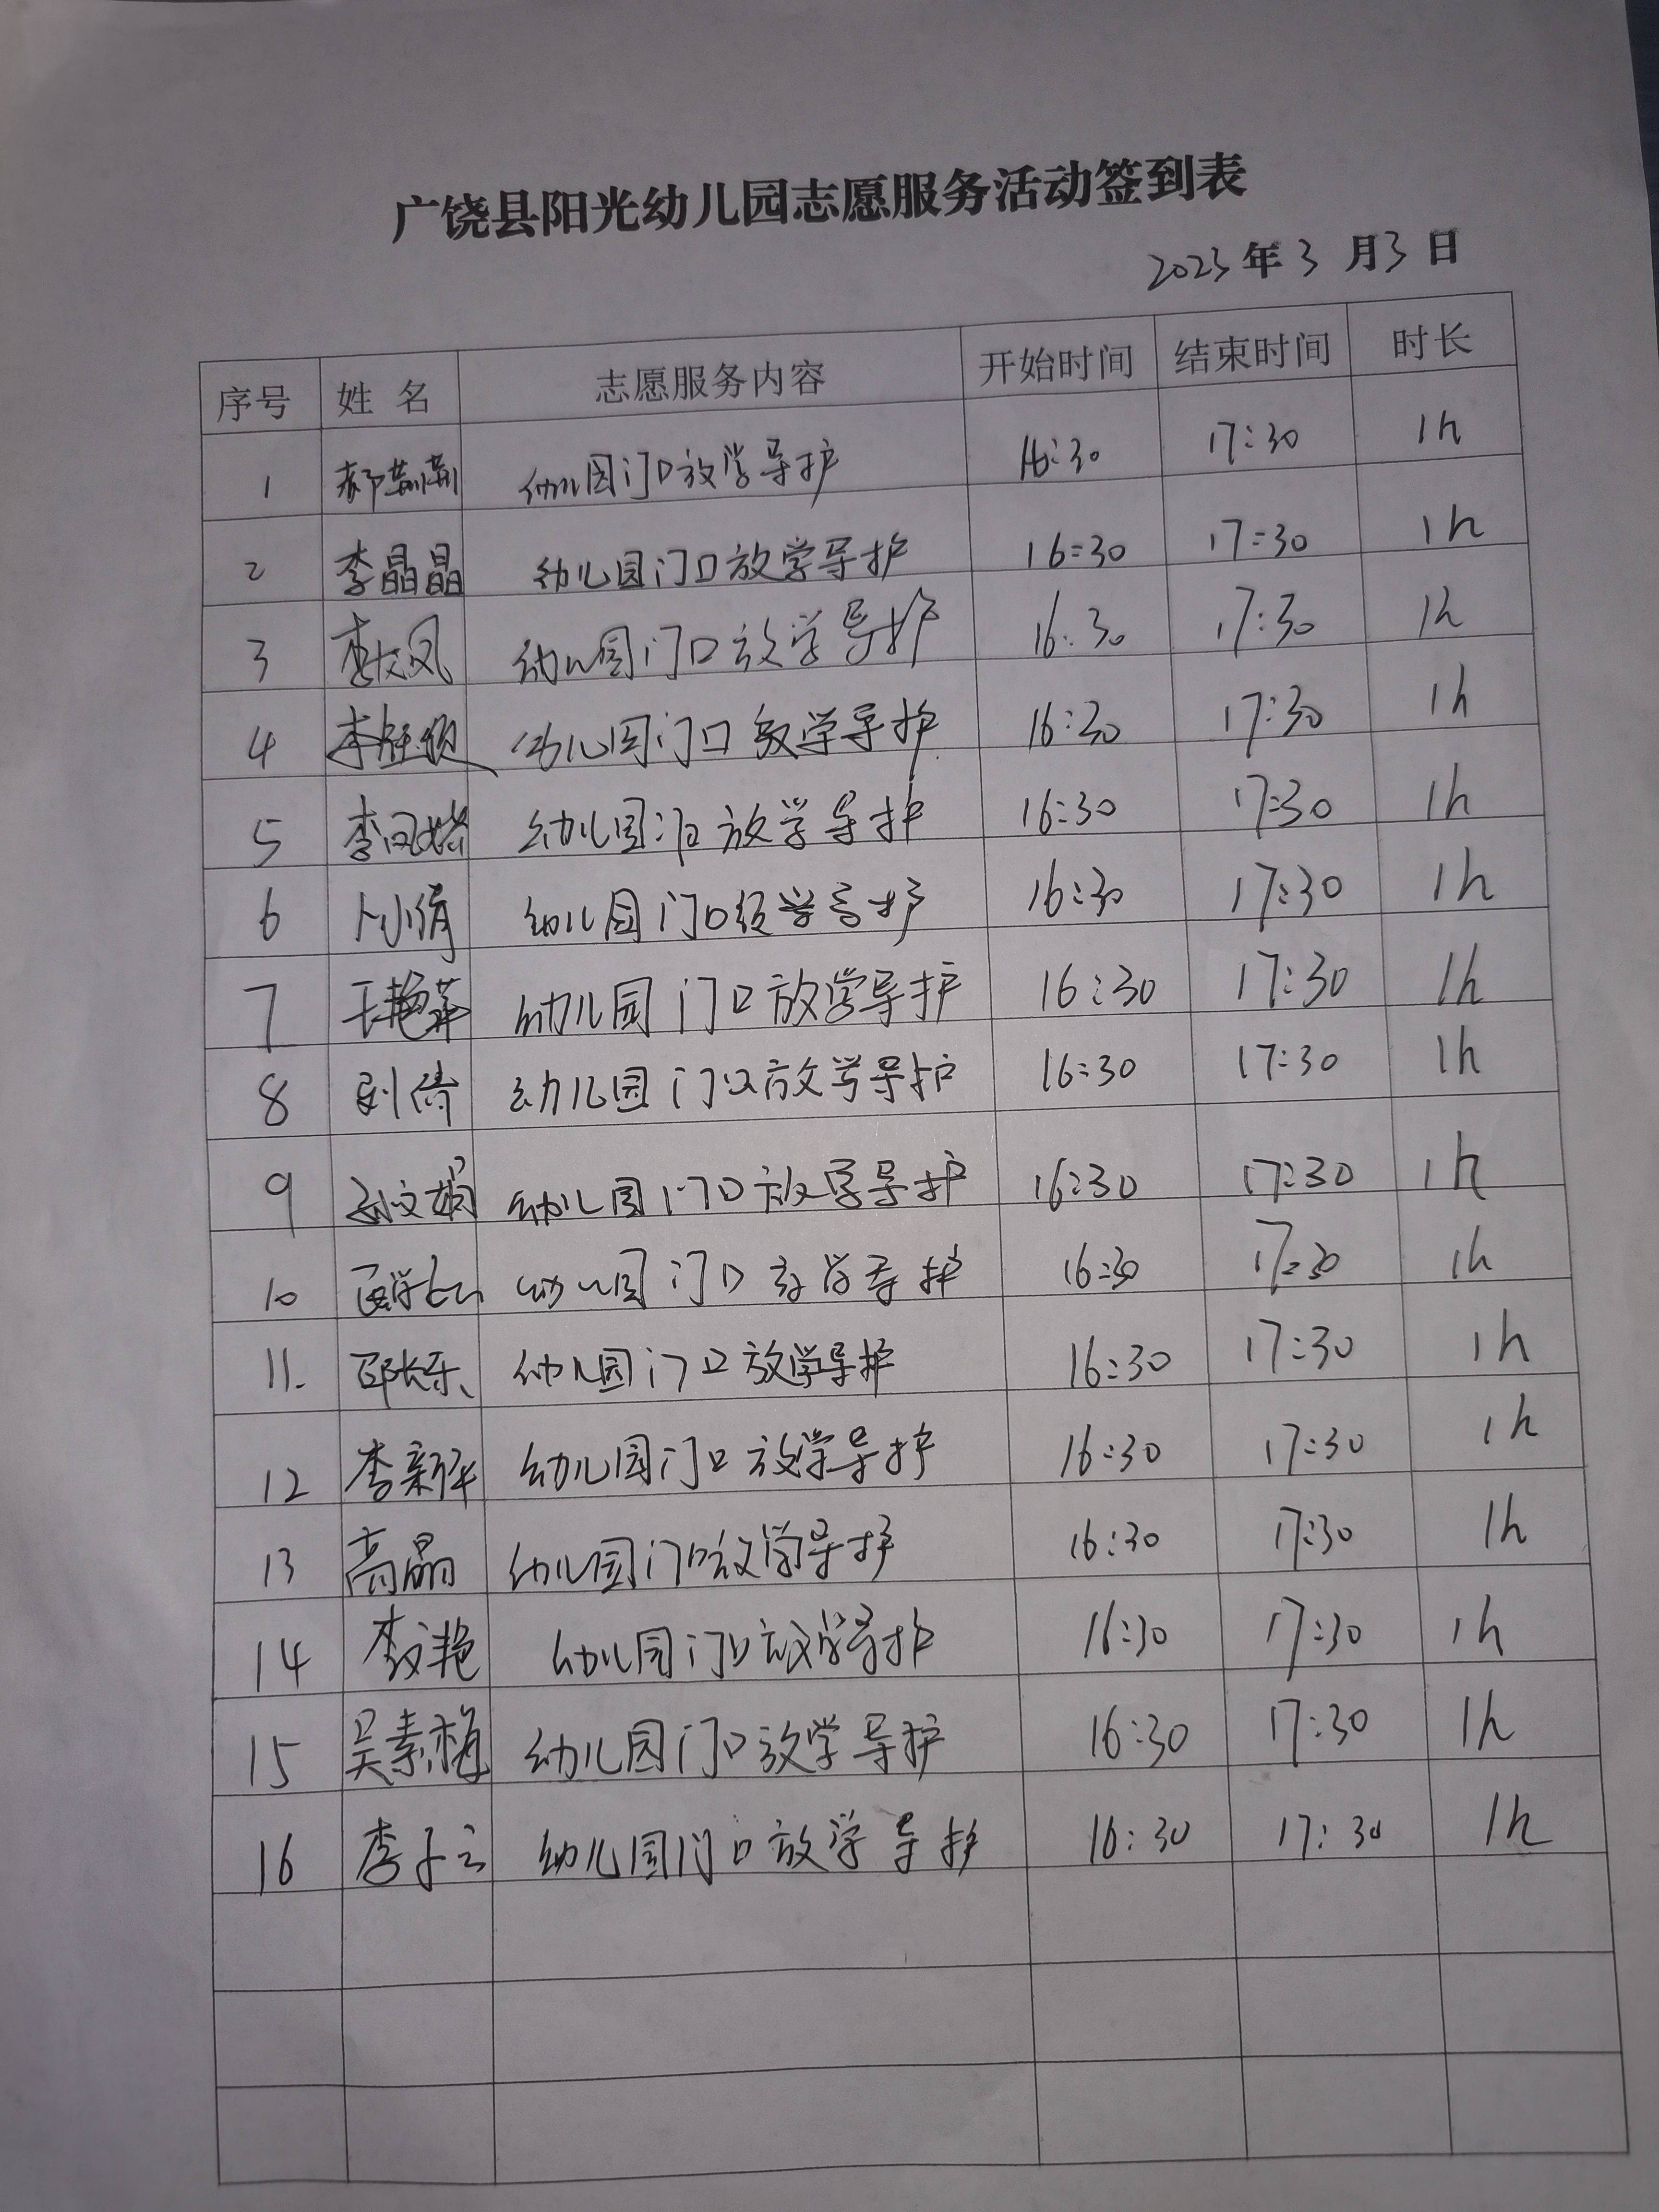 广饶县阳光幼儿园志愿服务活动签到表
2023年3月3日
序号 姓名 志愿服务内容 开始时间 结束时间 时长
1 郝荆荆 幼儿园门口放学导护 16:30 17:30 1h
2 李晶晶 幼儿园门口放学导护 16:30 17:30 1h
3 幼儿园门口放学导护 16:30 17:30 1h
4 幼儿园门口放学导护 16:30 17:30 1h
5 幼儿园门口放学导护 16:30 17:30 1h
6 卜小倩 幼儿园门口放学导护 16:30 17:30 1h
7 王艳萍 幼儿园门口放学导护 16:30 17:30 1h
8 刘倩 幼儿园门口放学导护 16:30 17:30 1h
9 孙文娟 幼儿园门口放学导护 16:30 17:30 1h
10 幼儿园门口放学导护 16:30 17:30 1h
11. 幼儿园门口放学导护 16:30 17:30 1h
12 李新华 幼儿园门口放学导护 16:30 17:30 1h
13 高晶 幼儿园门口放学导护 16:30 17:30 1h
14 李文艳 幼儿园门口放学导护 16:30 17:30 1h
15 吴素梅 幼儿园门口放学导护 16:30 17:30 1h
16 李子云 幼儿园门口放学导护 16:30 17:30 1h